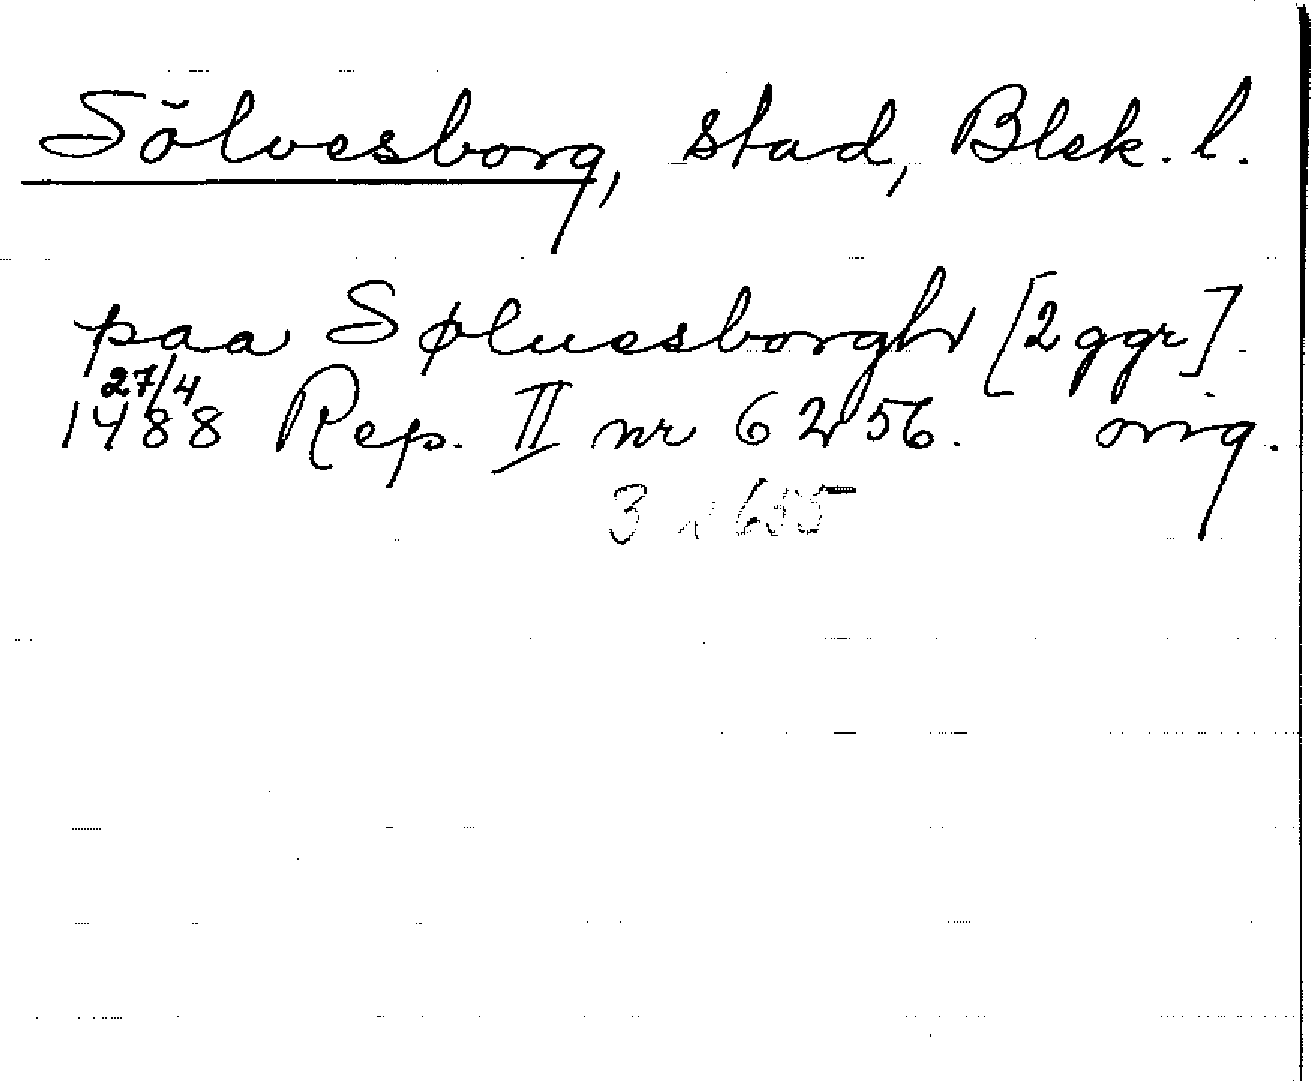 Sölvesborg, stad, Blek. l.
paa Søluesborgh [2 ggr].
27/4
1488 Rep. II nr 6256. orig.
3